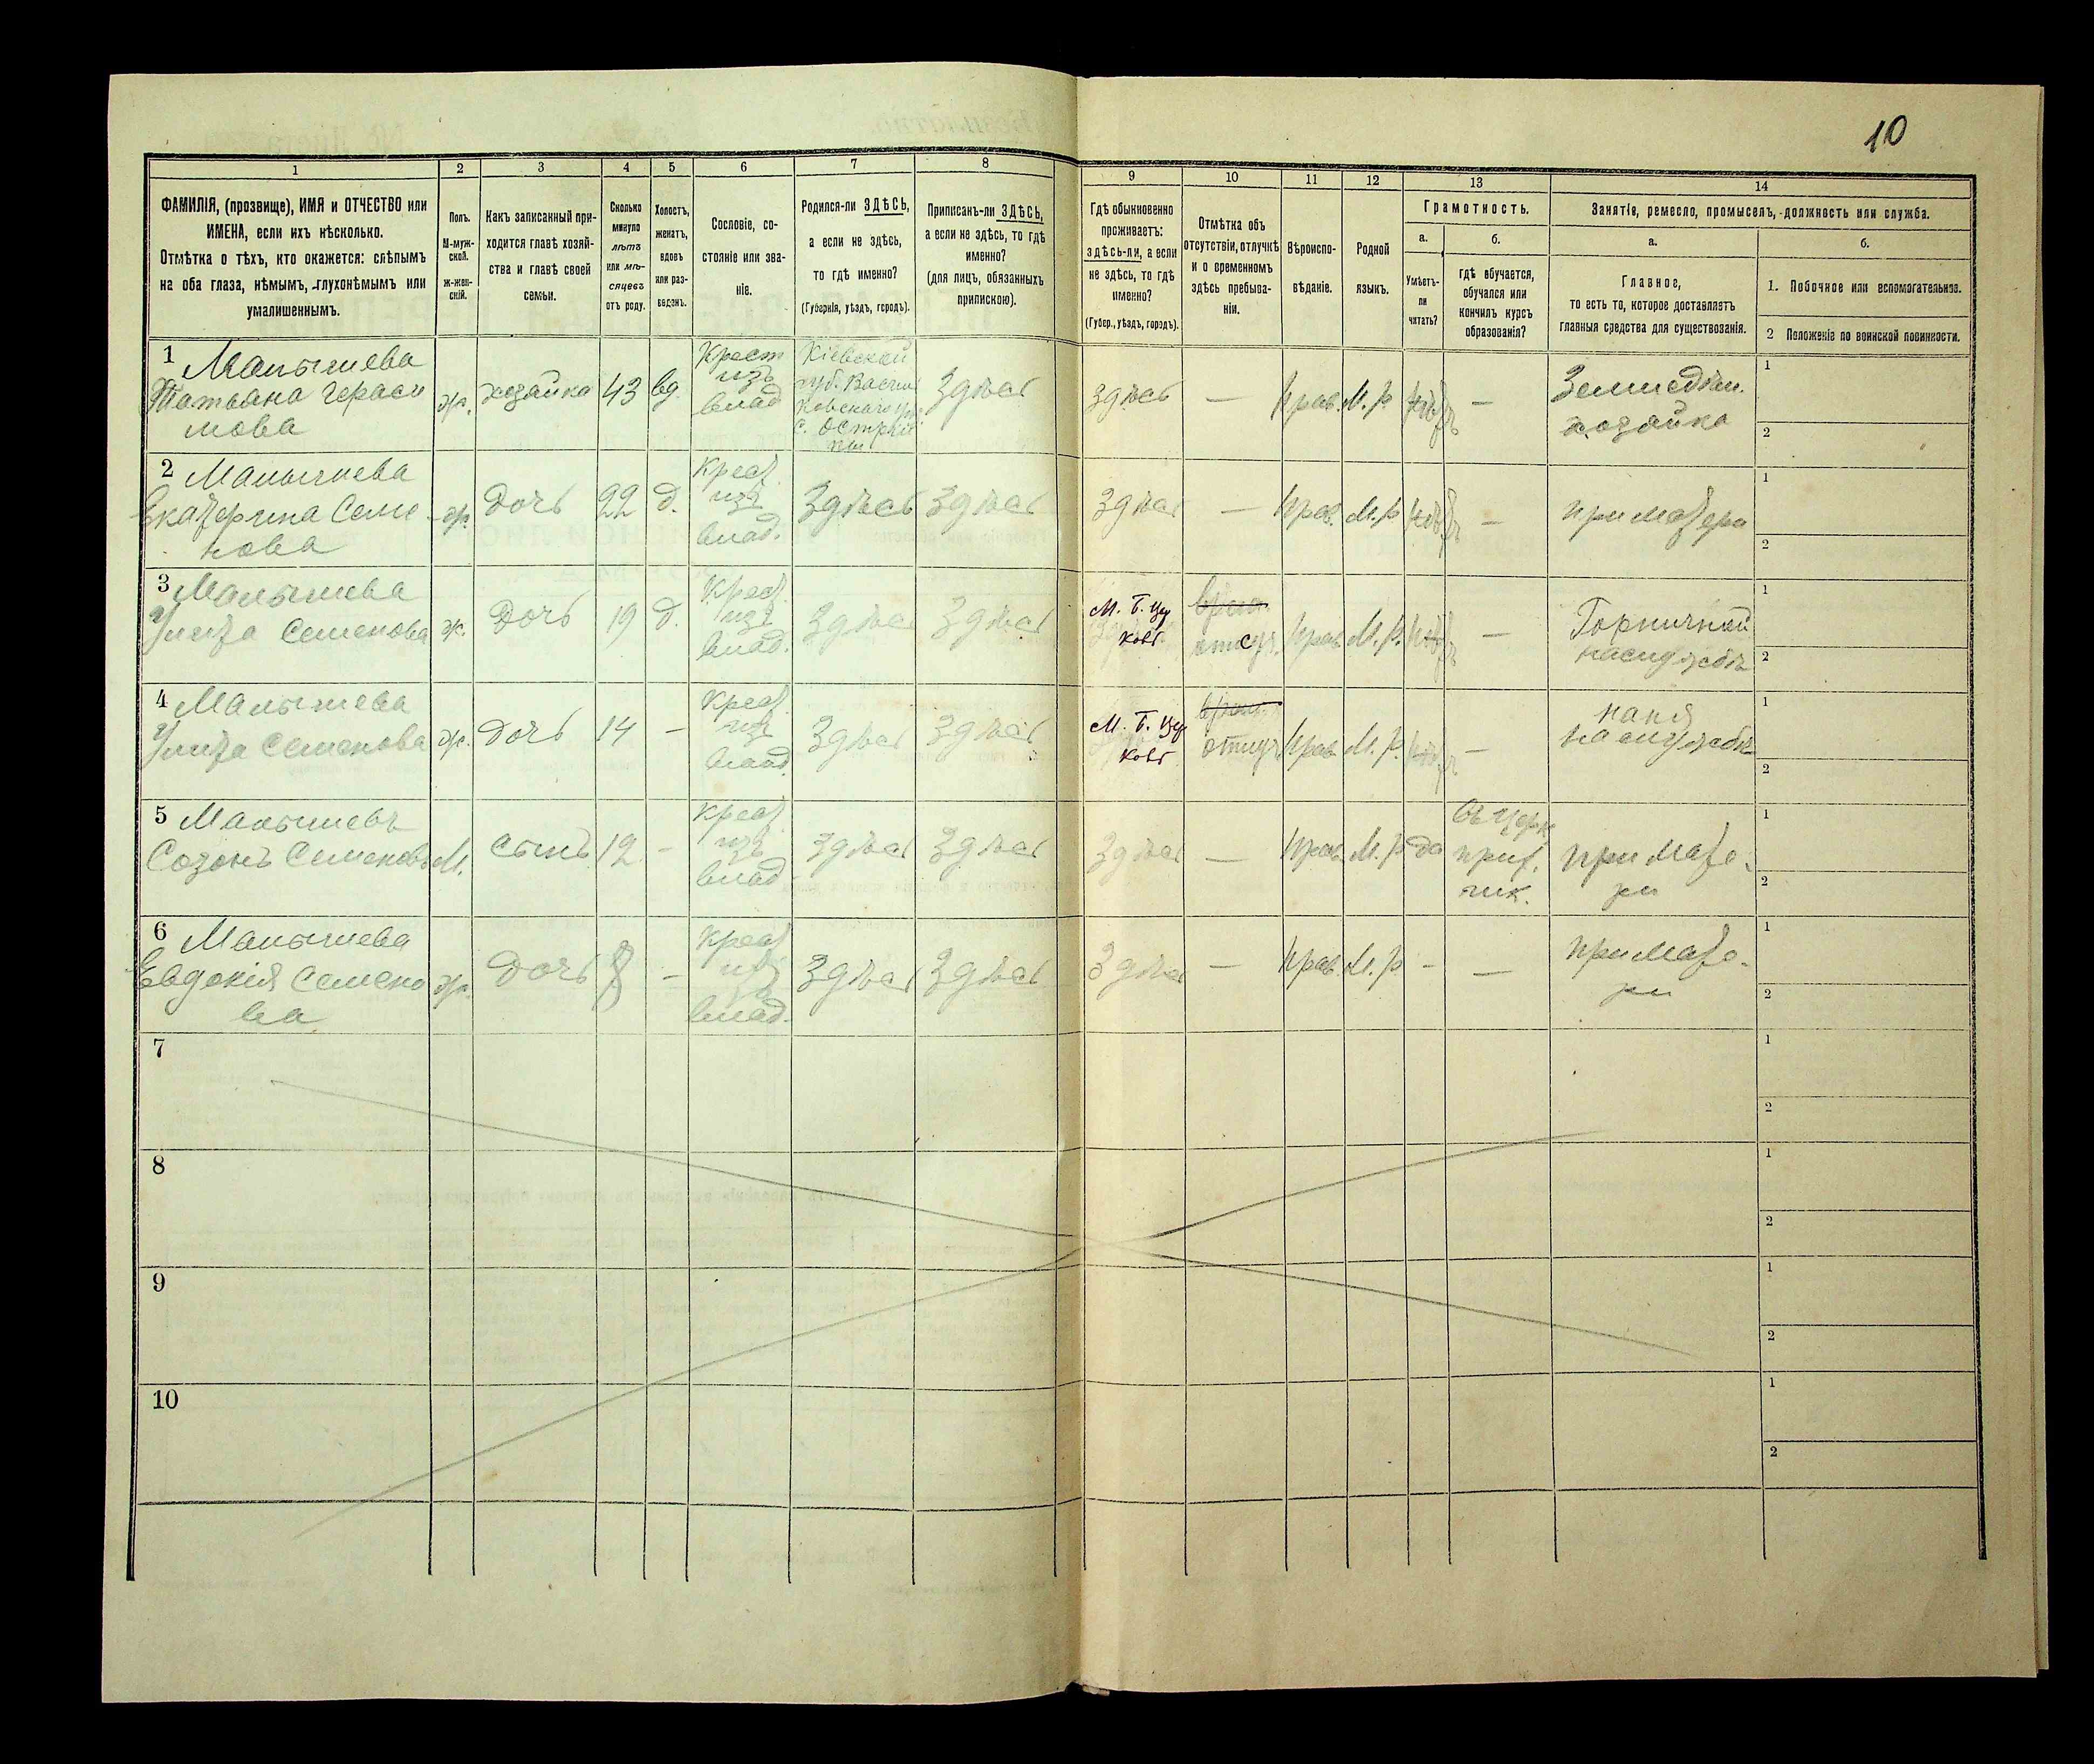 10
1
2
3
4
5
6
7
8
9
10
11
12
13
14
ФАМИЛІЯ, (прозвище), ИМЯ и ОТЧЕСТВО или
ИМЕНА, если ихъ нѣсколько.
Отмѣтка о тѣхъ, кто окажется: слѣпымъ
на оба глаза, нѣмымъ, глухонѣмымъ или
умалишеннымъ.
Полъ.
М-муж-
ской.
ж-жен-
скій.
Какъ записанный при-
ходится главѣ хозяй-
ства и главѣ своей
семьи.
Сколько
минуло
лѣтъ
или мѣ-
сяцевъ
отъ роду.
Холостъ,
женатъ,
вдовъ
или раз-
веденъ.
Сословіе, со-
стояніе или зва-
ніе.
Родился-ли ЗДѢСЬ,
а если не здѣсь,
то гдѣ именно?
(Губернія, уѣздъ, городъ).
Приписанъ-ли ЗДѢСЬ,
а если не здѣсь, то гдѣ
именно?
(для лицъ, обязанныхъ
припискою).
Гдѣ обыкновенно
проживаетъ:
здѣсь-ли, а если
не здѣсь, то гдѣ
именно?
(Губер., уѣздъ, городъ).
Отмѣтка объ
отсутствіи, отлучкѣ
и о временномъ
здѣсь пребыва-
ніи.
Вѣроиспо-
вѣданіе.
Родной
языкъ.
Грамотность.
а.
Умѣетъ-
ли
читать?
б.
гдѣ обучается,
обучался или
кончилъ курсъ
образованія?
Занятіе, ремесло, промыселъ, должность или служба.
а.
Главное,
то есть то, которое доставляетъ
главныя средства для существованія.
б.
1. Побочное или вспомогательное.
2 Положеніе по воинской повинности.
1 Малышева
Татьяна Гераси
мова
ж.
хозяйка
43
вд.
Крест
изъ
влад
Кіевской
губ. Васил
ковскаго у
с.
здѣсь
здѣсь
—
прав.
М. р
нѣтъ
—
Земледѣл.
хозяйка
1
2
2 Малышева
Екатерина Семе
нова
ж.
дочь
22
д.
Крест
изъ
влад.
здѣсь
здѣсь
здѣсь
—
прав.
М. р
нѣтъ
—
при матери
1
2
3 Малышева
Улита Семенова
ж.
дочь
19
д.
Крест
изъ
влад.
здѣсь
здѣсь
М. Б. Цу
ковъ
отлуч.
прав
М. р.
нѣтъ
—
Горничной
на службѣ
1
2
4 Малышева
Улита Семенова
ж.
дочь
14
—
Крест
изъ
влад.
здѣсь
здѣсь
М. Б. Цу
ковъ
отлуч
прав
М. р.
нѣтъ
—
няня
на службѣ
1
2
5 Малышевъ
Созонъ Семеновъ
М.
сынъ
12
—
Крест
изъ
влад
здѣсь
здѣсь
здѣсь
—
прав.
М. р
да
въ церк
прих.
учк.
при мате-
ри
1
2
6 Малышева
Евдокія Семено
ва
ж.
дочь
8
—
Крест
изъ
влад.
здѣсь
здѣсь
здѣсь
—
прав.
М. р
-
—
при мате-
ри
1
2
7
1
2
8
1
2
9
1
2
10
1
2